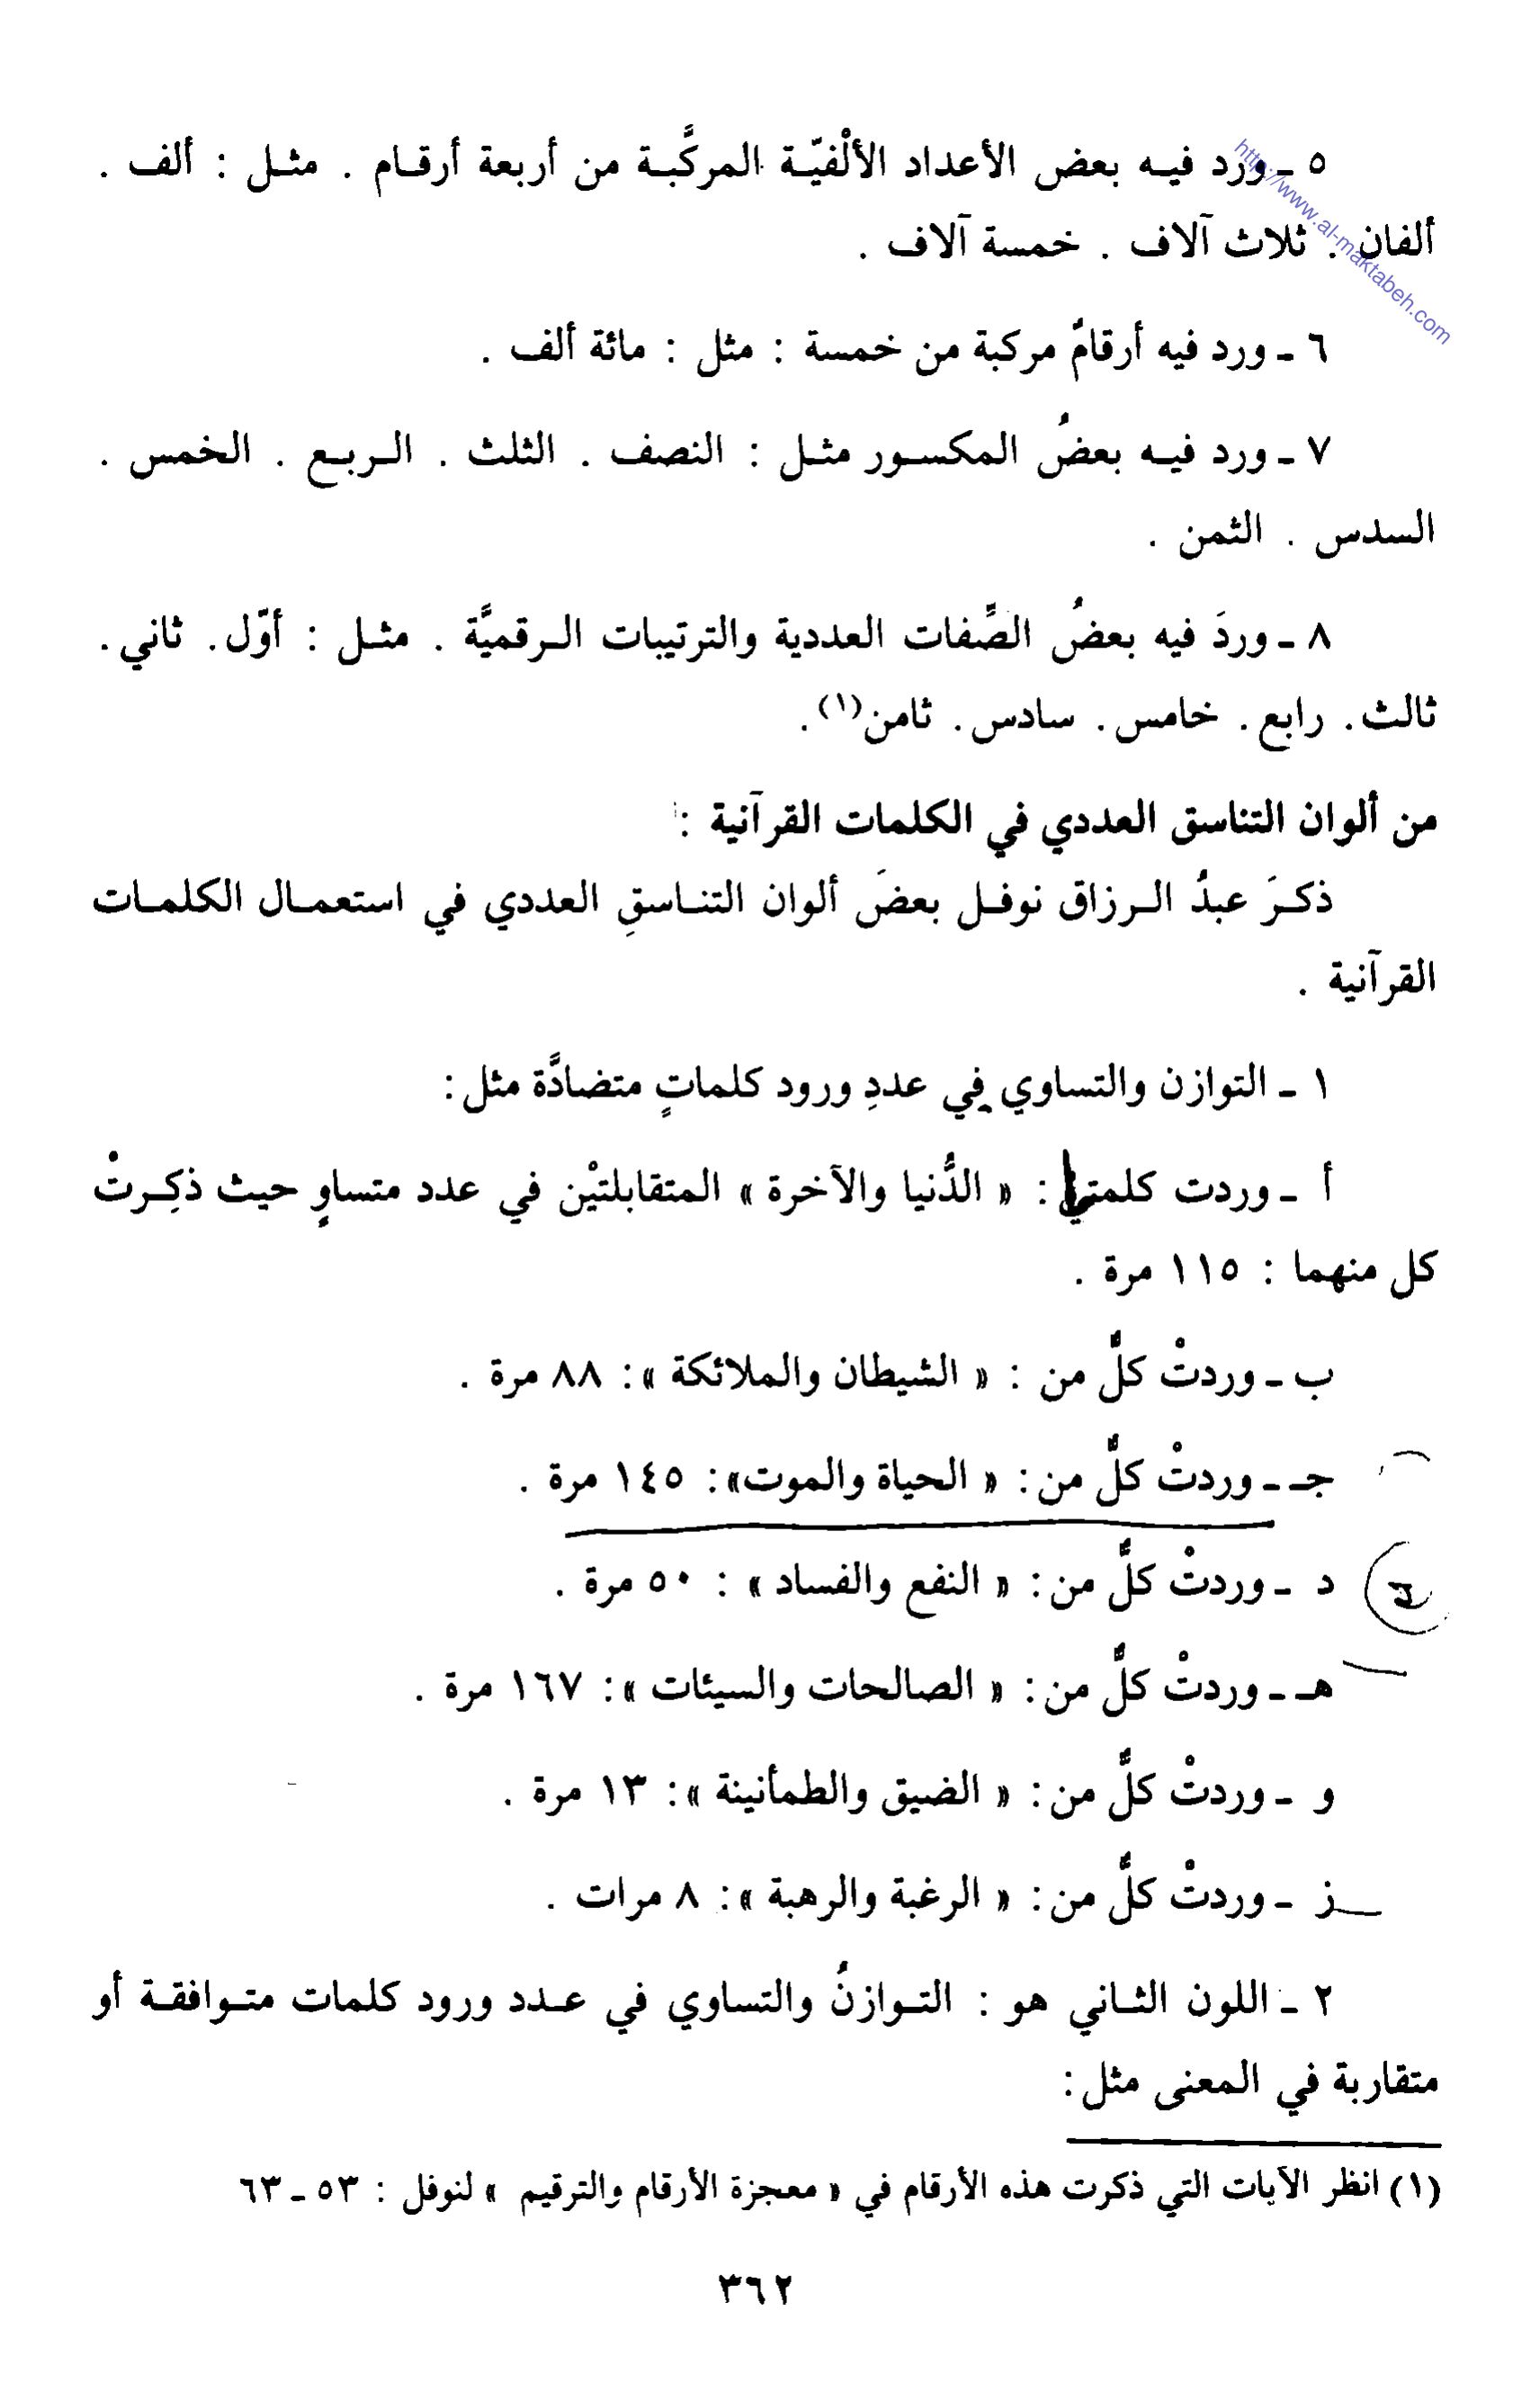 ٥ ـ ورد فيـه بعض الأعداد الألْفيّـة المركَّبـة من أربعة أرقـام . مثـل : ألف .
ألفان . ثلاث آلاف . خمسة آلاف .
٦ ـ ورد فيه أرقامٌ مركبة من خمسة : مثل : مائة ألف .
٧ ـ ورد فيـه بعضُ المكسـور مثـل : النصف . الثلث . الـربـع . الخمس .
السدس . الثمن .
٨ ـ وردَ فيه بعضُ الصِّفات العددية والترتيبات الـرقميَّة . مثـل : أوّل . ثاني .
ثالث . رابع . خامس . سادس . ثامن(١) .
من ألوان التناسق العددي في الكلمات القرآنية :
ذكـرَ عبدُ الـرزاق نوفـل بعضَ ألوان التنـاسقِ العددي في استعمـال الكلمـات
القرآنية .
١ ـ التوازن والتساوي في عددِ ورود كلماتٍ متضادَّة مثل :
أ ـ وردت : « الدُّنيا والآخرة » المتقابلتيْن في عدد متساوٍ حيث ذكِـرتْ
كل منهما : ١١٥ مرة .
ب ـ وردتْ كلٌّ من : « الشيطان والملائكة » : ٨٨ مرة .
جـ ـ وردتْ كلٌّ من : « الحياة والموت» : ١٤٥ مرة .
د ـ وردتْ كلٌّ من : « النفع والفساد » : ٥٠ مرة .
هـ ـ وردتْ كلٌّ من : « الصالحات والسيئات » : ١٦٧ مرة .
و ـ وردتْ كلٌّ من : « الضيق والطمأنينة » : ١٣ مرة .
ز ـ وردتْ كلٌّ من : « الرغبة والرهبة » : ٨ مرات .
٢ ـ اللون الثـاني هو : التـوازنُ والتساوي في عـدد ورود كلمات متـوافقـة أو
متقاربة في المعنى مثل :
(١) انظر الآيات التي ذكرت هذه الأرقام في « معجزة الأرقام والترقيم » لنوفل : ٥٣ ـ ٦٣
٣٦٢
http://www.al-maktabeh.com